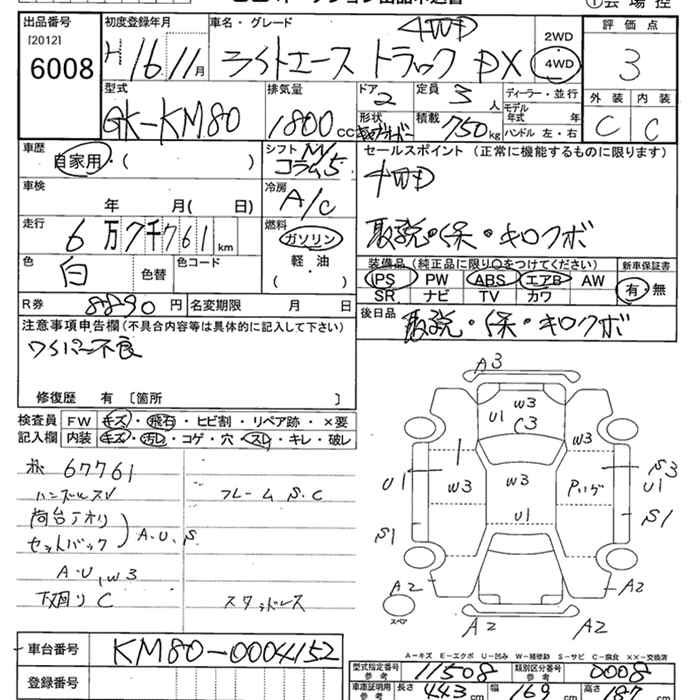 出品番号 初度登録年月 車名・グレード 4WD 2WD 評価点
[2012] 6008 H 16.11月 ライトエース トラック DX 4WD 3
型式 排気量 ドア 定員 ディーラー・並行 外装 内装
GK-KM80 1800cc 2 3人 モデル年式 年 C C
形状 積載 750kg ハンドル 左・右
車歴 シフト セールスポイント (正常に機能するものに限ります)
自家用・( ) コラム5
4WD
車検 年 月( 日) 冷房 A/C
走行 6万7千761km 燃料 取説・保・キロクボ
ガソリン
色 白 色替 色コード 軽・油 装備品(純正品に限り○をつけてください) 新車保証書
( ) PS PW ABS エアB AW 有・無
SR ナビ TV カワ
R券 8890円 名変期限 月 日 後日品 取説・保・キロクボ
注意事項申告欄(不具合内容等は具体的に記入して下さい)
ワイパー不良
修復歴 有〔箇所 〕
検査員 FW キズ・飛石・ヒビ割・リペア跡・×要
記入欄 内装 キズ・汚レ・コゲ・穴・スレ・キレ・破レ
67761
ハンドルスレ フレーム S.C
荷台アオリ
セットバック A.U.S
A.U,W3
下廻りC スタッドレス
A3
W3
U1 C3
W3
U1 W3 W3 S3 U1
U1
S1 S1
A2 A2
スペア
A2 A2
A-キズ E-エクボ U-凹み W-補修跡 S-サビ C-腐食 XX-交換済
車台番号 KM80-0004152 型式指定番号 参考 11508 類別区分番号 参考 0008
登録番号 車庫証明用 参考 長さ 443cm 幅 169cm 高さ 187cm